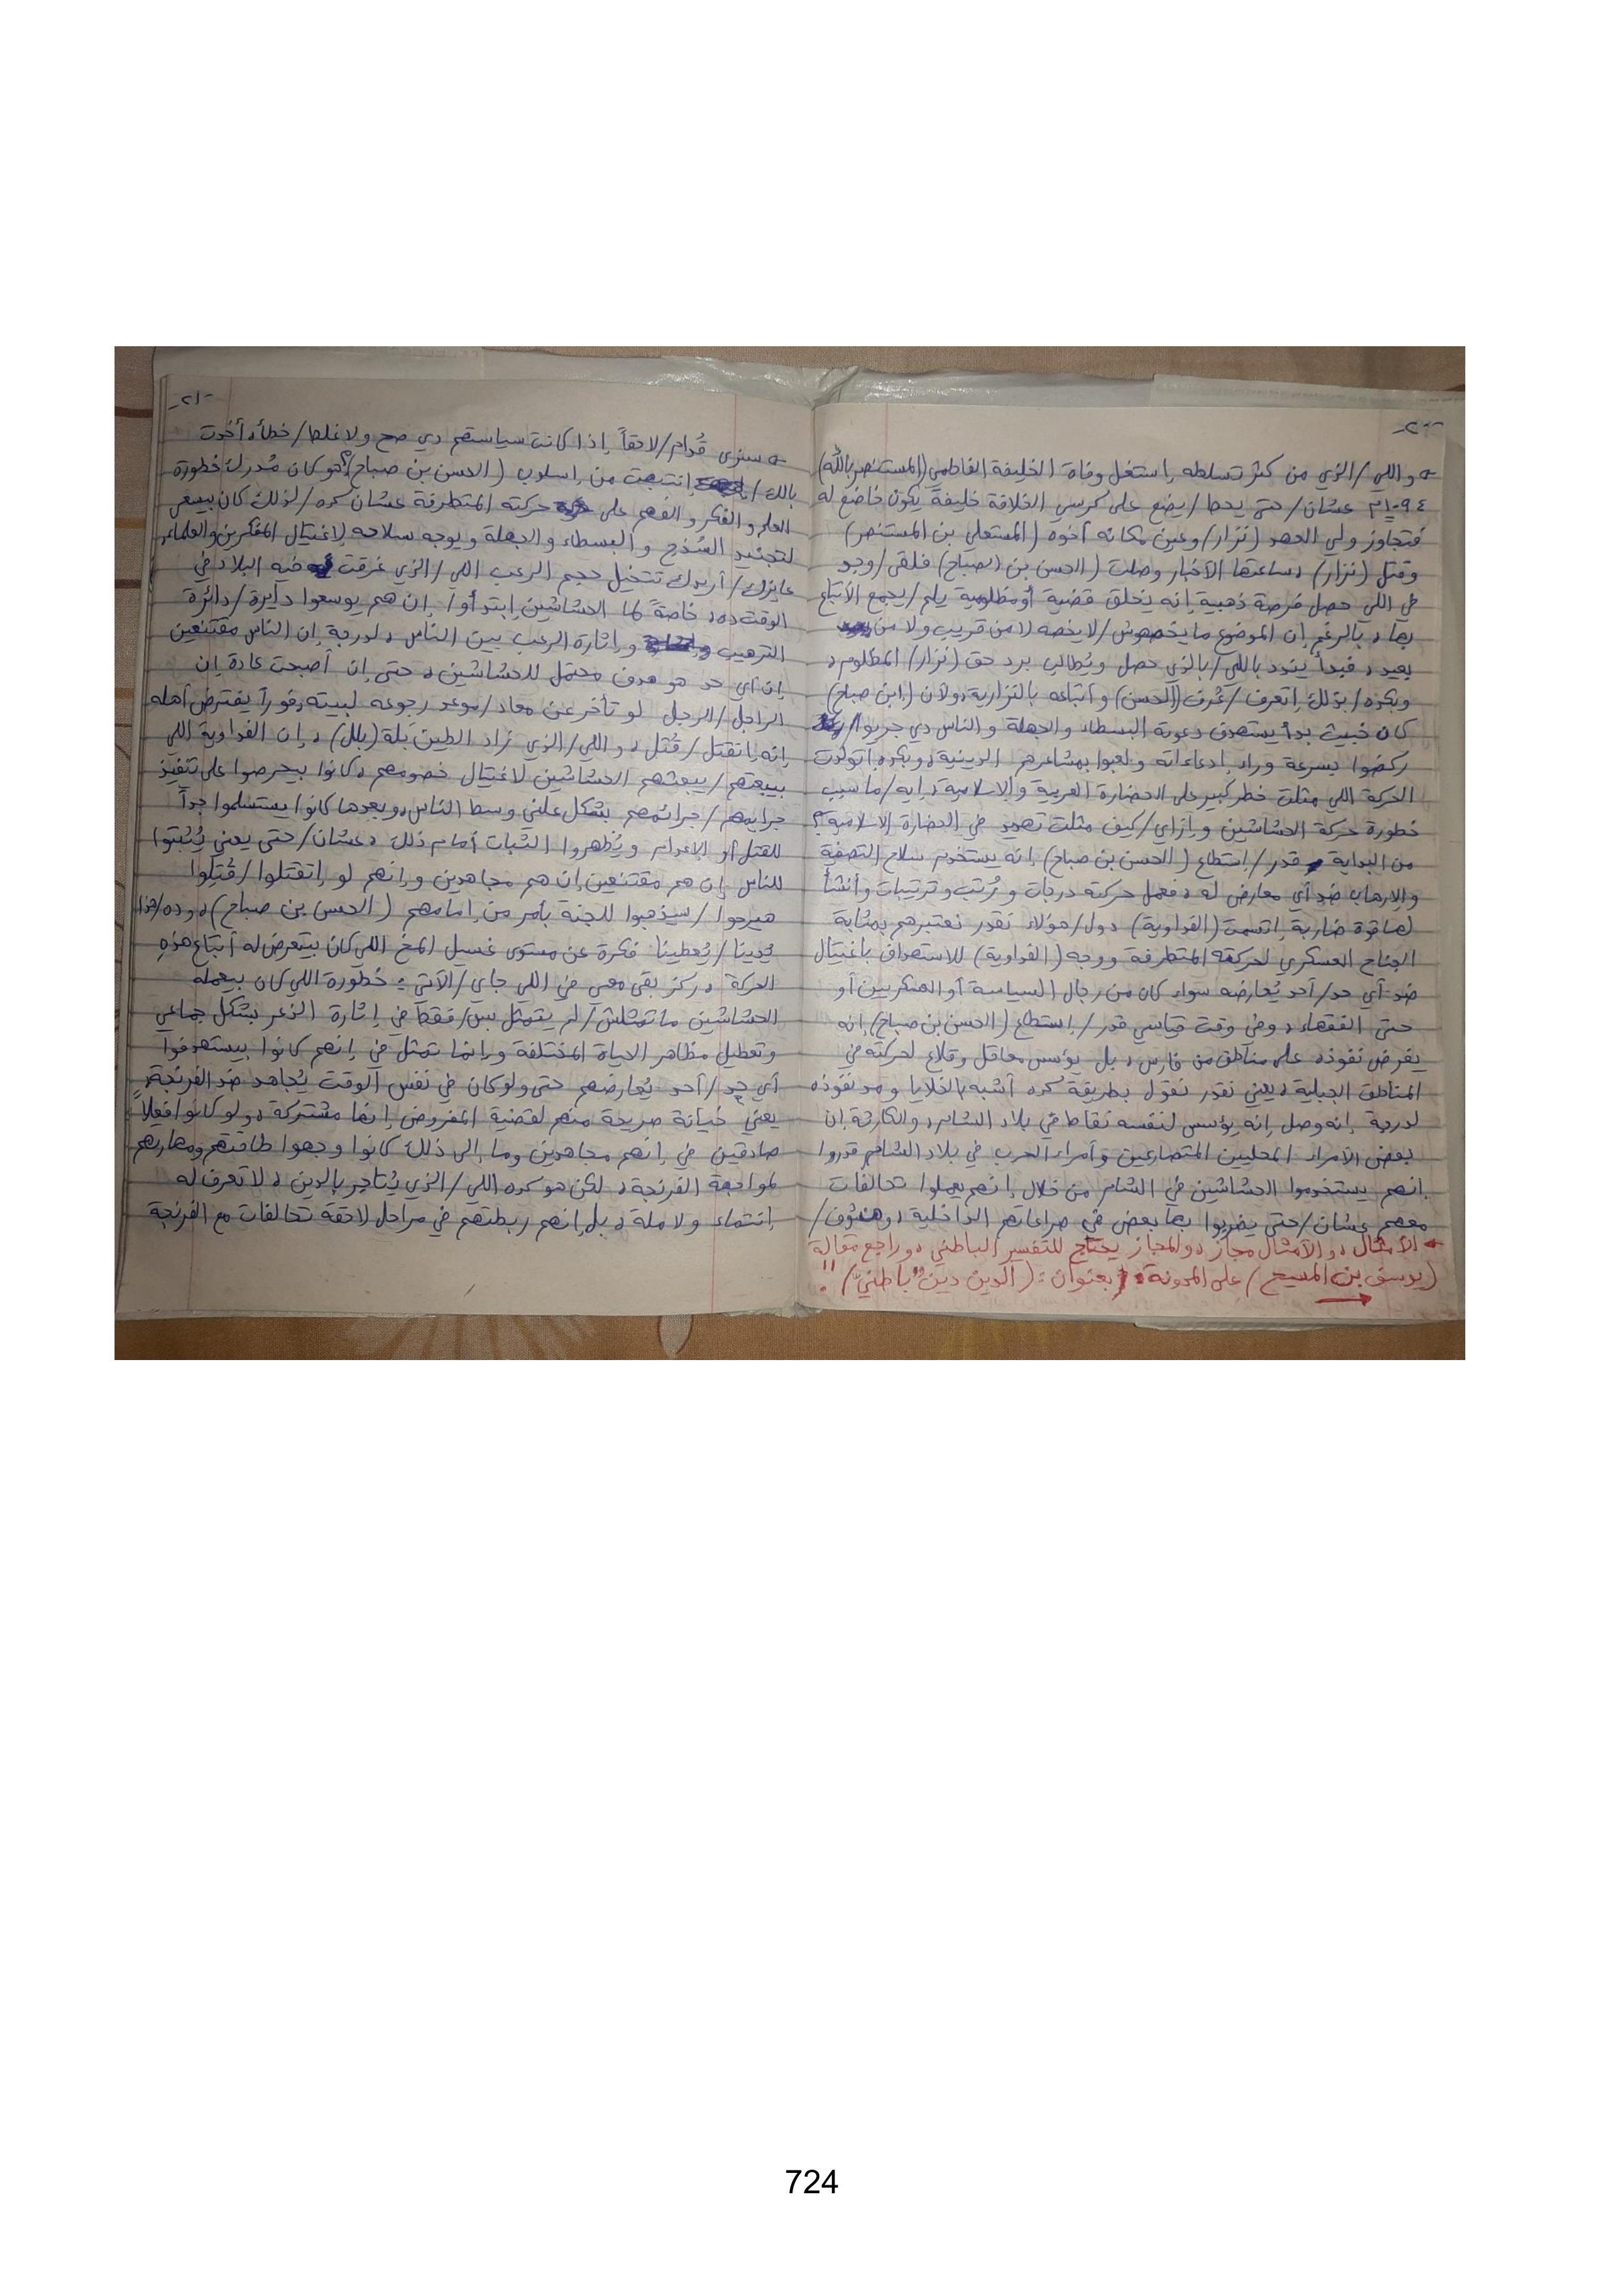 -٢٠-
و اللي/الذي من كتر تسلطه إستغل وفاة الخليفة الفاطمي (المستنصر بالله)
١٠٩٤م عشان/حتى يحط/يضع على كرسي الخلافة خليفة يكون خاضع له
فتجاوز ولي العهد (نزار) وعين مكانه أخوه (المستعلي بن المستنصر)
وقتل (نزار) ، ساعتها الأخبار وصلت (الحسن بن الصباح) فلقى/وجد
في اللي حصل فرصة ذهبية إنه يخلق قضية أو مظلومية يلم/يجمع الأتباع
بها ، بالرغم إن الموضوع ما يخصهوش/لا يخصه لا من قريب ولا من
بعيد ، فبدأ يندد باللي/بالذي حصل ويُطالب برد حق (نزار) المظلوم ،
وبكده/بذلك إتعرف/عُرف (الحسن) وأتباعه بالنزارية ، ولأن (إبن صباح)
كان خبيث بدأ يستهدف دعوته البسطاء والجهلة والناس دي جريوا/
ركضوا بسرعة وراء إدعاءاته ولعبوا بمشاعرهم الدينية ، وبكده إتولدت
الحركة اللي مثلت خطر كبير على الحضارة العربية والإسلامية ، إيه/ما سبب
خطورة حركة الحشاشين وإزاي/كيف مثلت تهديد في الحضارة الإسلامية؟
من البداية قدر/إستطاع (الحسن بن صباح) إنه يستخدم سلاح التصفية
والإرهاب ضد أي معارض له ، فعمل حركته درجات ورُتب وترتيبات وأنشأ
لها قوة ضاربة إتسمت (الفداوية) دول/هؤلاء نقدر نعتبرهم بمثابة
الجناح العسكري لحركته المتطرفة ووجه (الفداوية) للاستهداف باغتيال
ضد أي حد/أحد يُعارضه سواء كان من رجال السياسة أو العسكريين أو
حتى الفقهاء ، وفي وقت قياسي قدر/إستطاع (الحسن بن صباح) إنه
يفرض نفوذه على مناطق من فارس ، بل يؤسس معاقل وقلاع لحركته في
المناطق الجبلية ، يعني نقدر نقول بطريقة كده أشبه بالخلايا ومد نفوذه
لدرجة إنه وصل إنه يؤسس لنفسه نقاط في بلاد الشام ، والكارثة إن
بعض الأمراء المحليين المتصارعين وأمراء الحرب في بلاد الشام قدروا
إنهم يستخدموا الحشاشين في الشام من خلال إنهم يعملوا تحالفات
معهم عشان/حتى يضربوا بها بعض في صراعاتهم الداخلية ، وهنشوف/
الأمثال ، والأمثال مجاز ، والمجاز يحتاج للتفسير الباطني ، وراجع مقالة
(يوسف بن المسيح) على المدونة ، بعنوان : (الدين دين "باطني") !!
-٢١-
سنرى قُدام/لاحقاً إذا كانت سياستهم دي صح ولا غلط/خطأ ، أخدت
بالك/إنتبهت من إسلوب (الحسن بن صباح)؟ هو كان مُدرك خطورة
العلم والفكر والفهم على حركته المتطرفة عشان كده/لذلك كان بيسعى
لتجنيد السُذج والبسطاء والجهلة ويوجه سلاحه لإغتيال المفكرين والعلماء
عايزك/أريدك تتخيل حجم الرعب اللي/الذي غرقت فيه البلاد في
الوقت ده ، خاصةً لما الحشاشين إبتدأوا/ إن هم يوسعوا دايرة/دائرة
الترهيب و إثارة الرعب بين الناس ، لدرجة إن الناس مقتنعين
إن أي حد هو هدف محتمل للحشاشين ، حتى إن أصبحت عادة إن
الراجل/الرجل لو تأخر عن معاد/موعد رجوعه لبيته ، فوراً يفترض أهله
إنه إتقتل/قُتل ، و اللي/الذي زاد الطين بَلة (بلل) ، إن الفداوية اللي
بيبعتهم/يبعثهم الحشاشين لاغتيال خصومهم ، كانوا بيحرصوا على تنفيذ
جرايمهم/جرائمهم بشكل علني وسط الناس ، وبعدها كانوا يستسلموا جداً
للقتل أو الإعدام ويُظهروا الثبات أمام ذلك ، عشان/حتى يعني يُثبتوا
للناس إن هم مقتنعين إن هم مجاهدين وإنهم لو إتقتلوا/قُتِلوا
هيرحوا/سيذهبوا للجنة بأمر من إمامهم (الحسن بن صباح) ، وده/هذا
يُدينا/يُعطينا فكرة عن مستوى غسيل المخ اللي كان بيتعرض له أتباع هذه
الحركة ، ركز بقى معي في اللي جاي/الآتي : خطورة اللي كان بيعمله
الحشاشين ما تمثلش/لم يتمثل بس/فقط في إثارة الذعر بشكل جماعي
وتعطيل مظاهر الحياة المختلفة وإنما تمثل في إنهم كانوا بيستهدفوا
أي حد/أحد يُعارضهم حتى ولو كان في نفس الوقت يُجاهد ضد الفرنجة ،
يعني خيانة صريحة منهم لقضية المفروض إنها مشتركة ، ولو كانوا فعلاً
صادقين في إنهم مجاهدين وما إلى ذلك كانوا وجهوا طاقتهم ومهاراتهم
لمواجهة الفرنجة ، لكن هو كده اللي/الذي يُتاجر بالدين ، لا تعرف له
إنتماء ولا ملة ، بل إنهم ربطتهم في مراحل لاحقة تحالفات مع الفرنجة
724